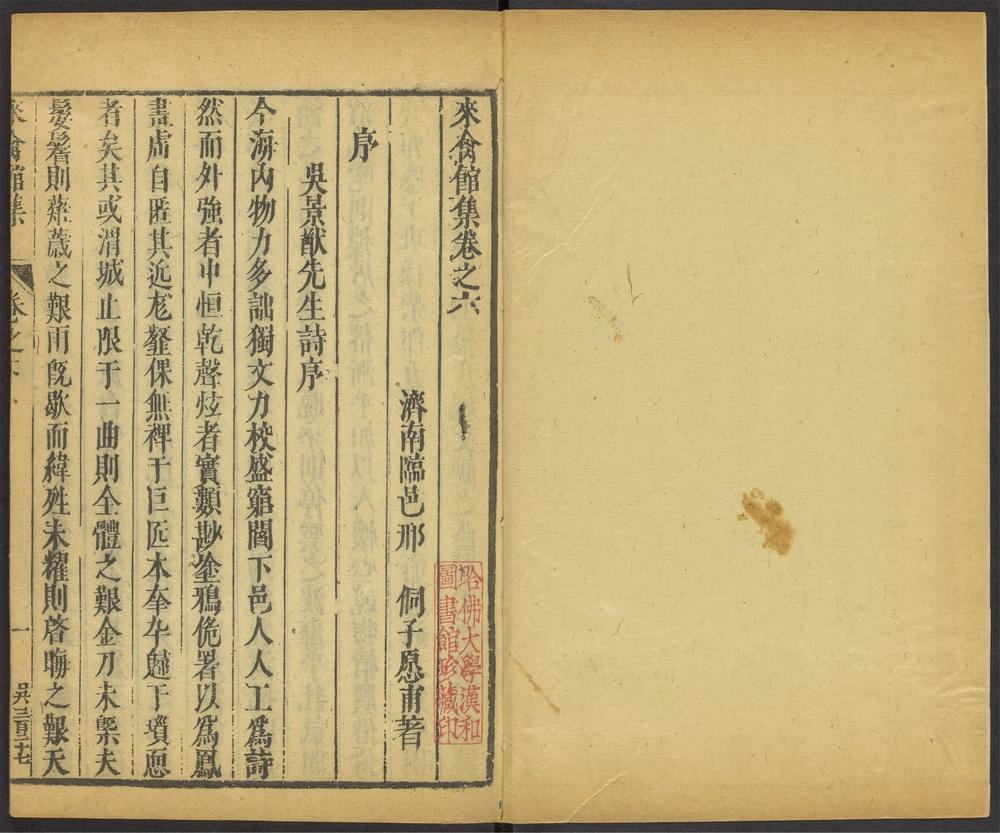 來禽館集卷之六
濟南臨邑邢 侗子愿甫著
哈佛大學漢和
圖書館珍藏印
序
吳景猷先生詩序
今海內物力多詘獨文力校盛窮閻下邑人人工爲詩
然而外強者中恒乾聲炫者實顥尠塗鴉佹署以爲鳳
晝虜自匿其近尨鼜倮無裨于巨匠本牽卆韙于瑣愿
者矣其或渭城止限于一曲則全體之艱金刀未槩夫
髮髻則蕭薉之艱雨旣歇而緯殅未耀則啓晦之艱天
來禽館集 卷之六 一